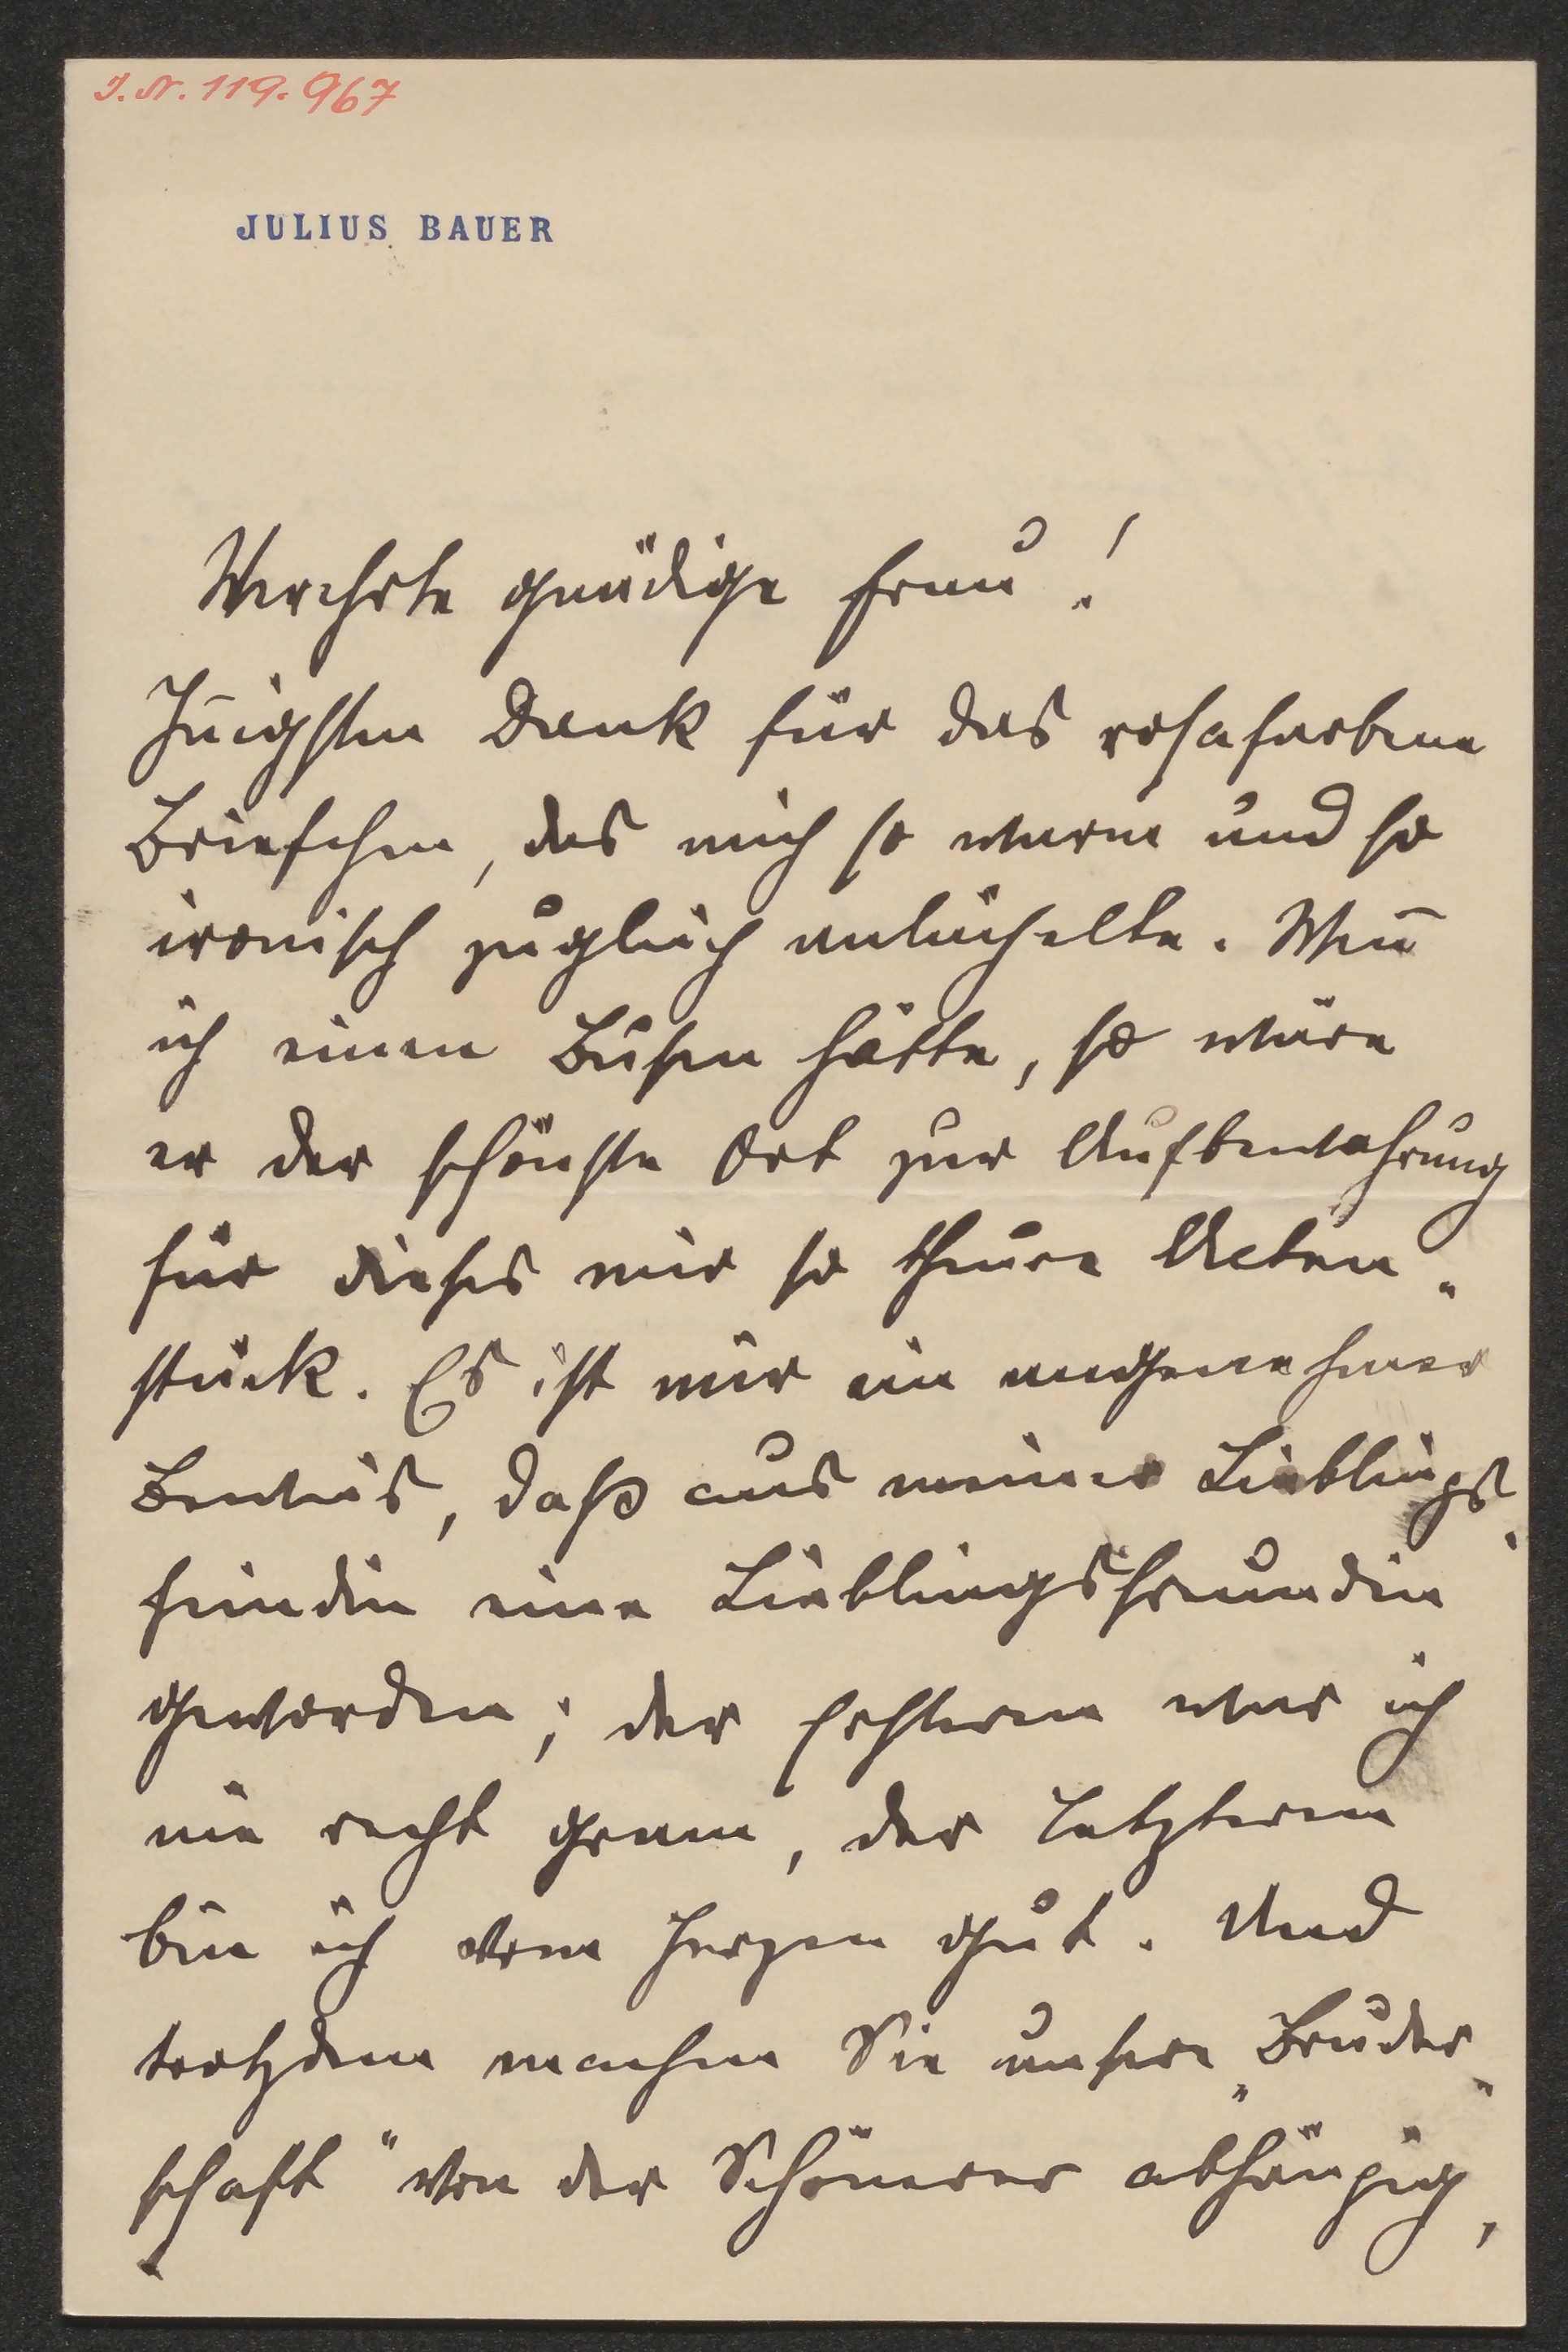 J. N. 119.967
JULIUS BAUER
Verehrte gnädige Frau!
Iñigsten Dank für das rosafarbene
Briefchen, das mich so warm und so
ironisch zugleich anlächelte. Weñ
ich einen Busen hätte, so wäre
er der schönste Ort zur Aufbewahrung
für dieses mir so theure Acten-
stück. Es ist mir ein angenehmer
Beweis, daß aus meiner Lieblings-
feindin eine Lieblingsfreundin
geworden; der Ersteren war ich
nie recht gram, der Letzteren
bin ich vom Herzen gut. Und
trotzdem machen Sie unsere „Bruder-
schaft" von der Schönerer abhängig,